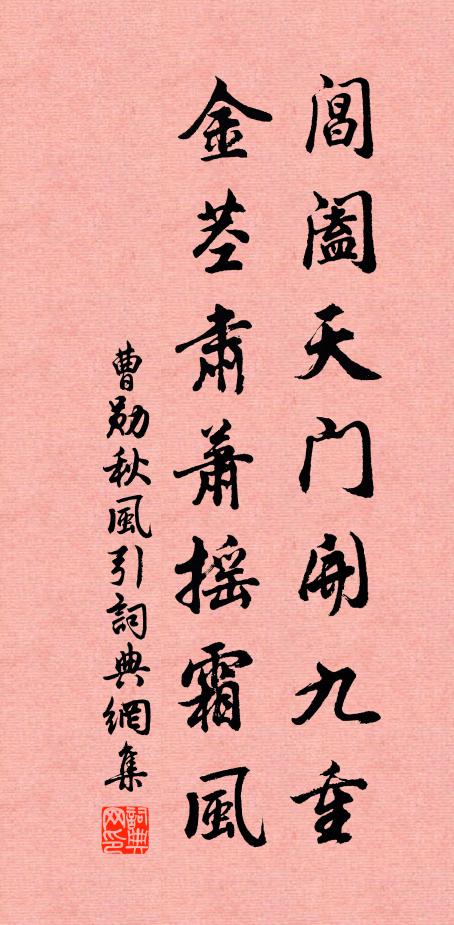 閶闔天门開九重
金茎肅蕭摇霜風
曹勛秋風引詞典網集
詞典网印